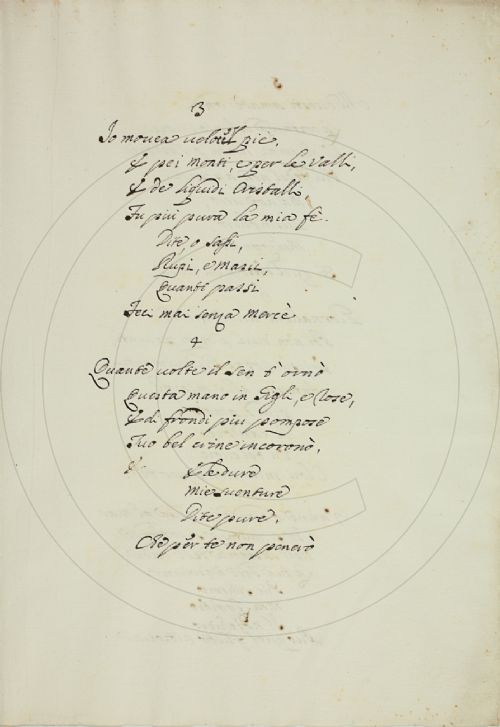 3
Io movea veloce il piè,
E pei monti, e per le valli,
E de liquidi Cristalli,
Fu piu pura la mia fè.
Dite, o sassi,
Rupi, e marii,
Quanti passi
Feci mai senza Mercè
4
Quante volte il sen t'ornò
Questa mano in Gigli, e Rose,
E di frondi piu pompose
Tuo bel crine incoronò,
E le dure
Mie sventure
Dite pure,
Che per te non penerò